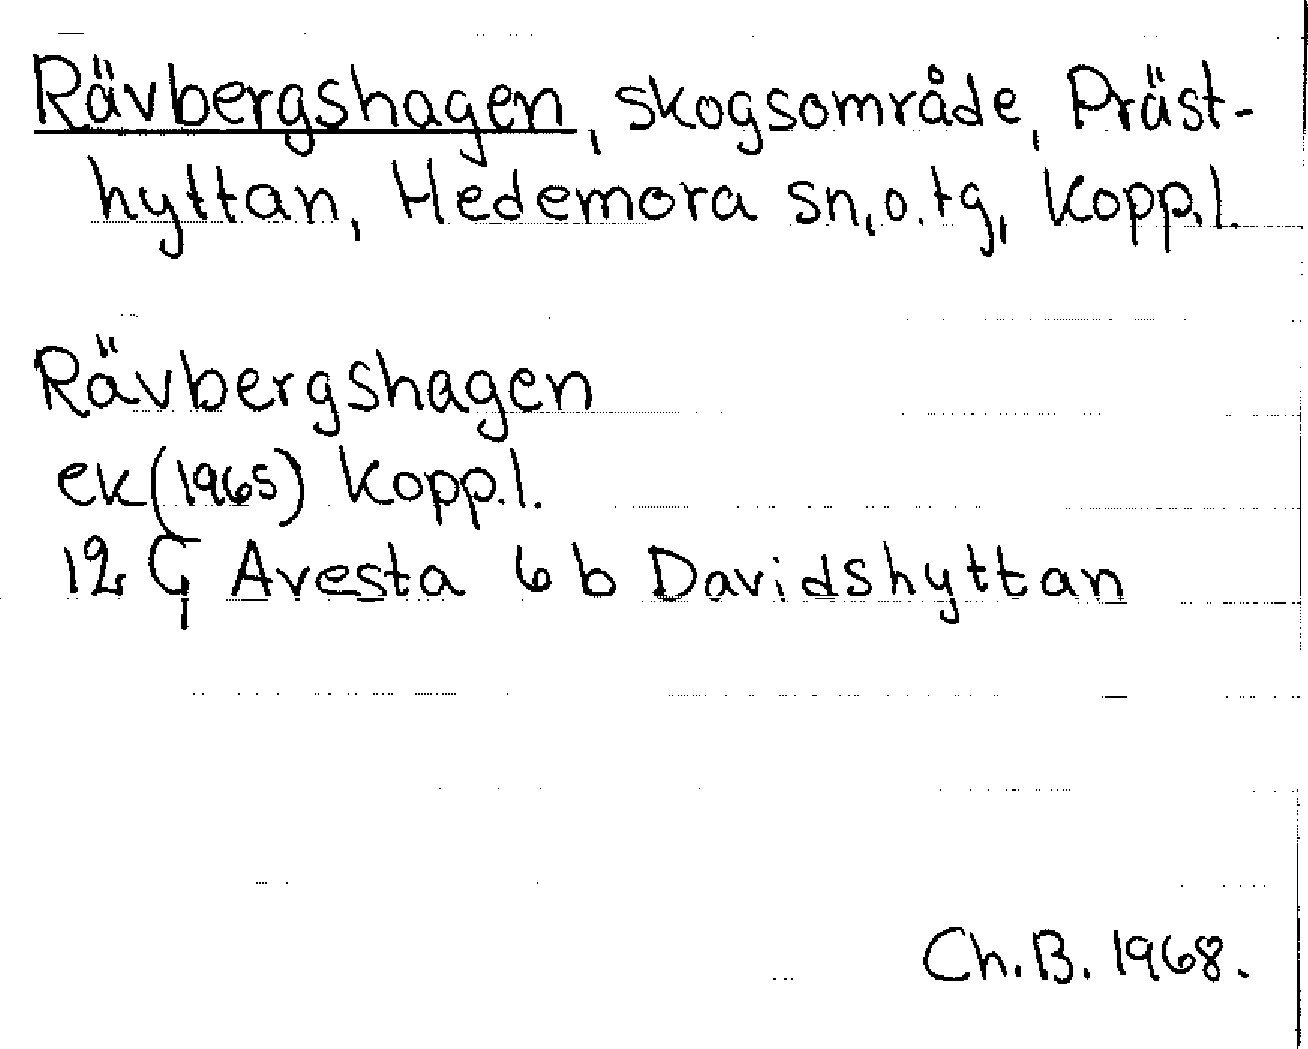 Rävbergshagen, skogsområde, Präst-
hyttan, Hedemora sn, o. tg, Kopp.l.
Rävbergshagen
ek (1965) Kopp.l.
12 G Avesta 6 b Davidshyttan
Ch. B. 1968.